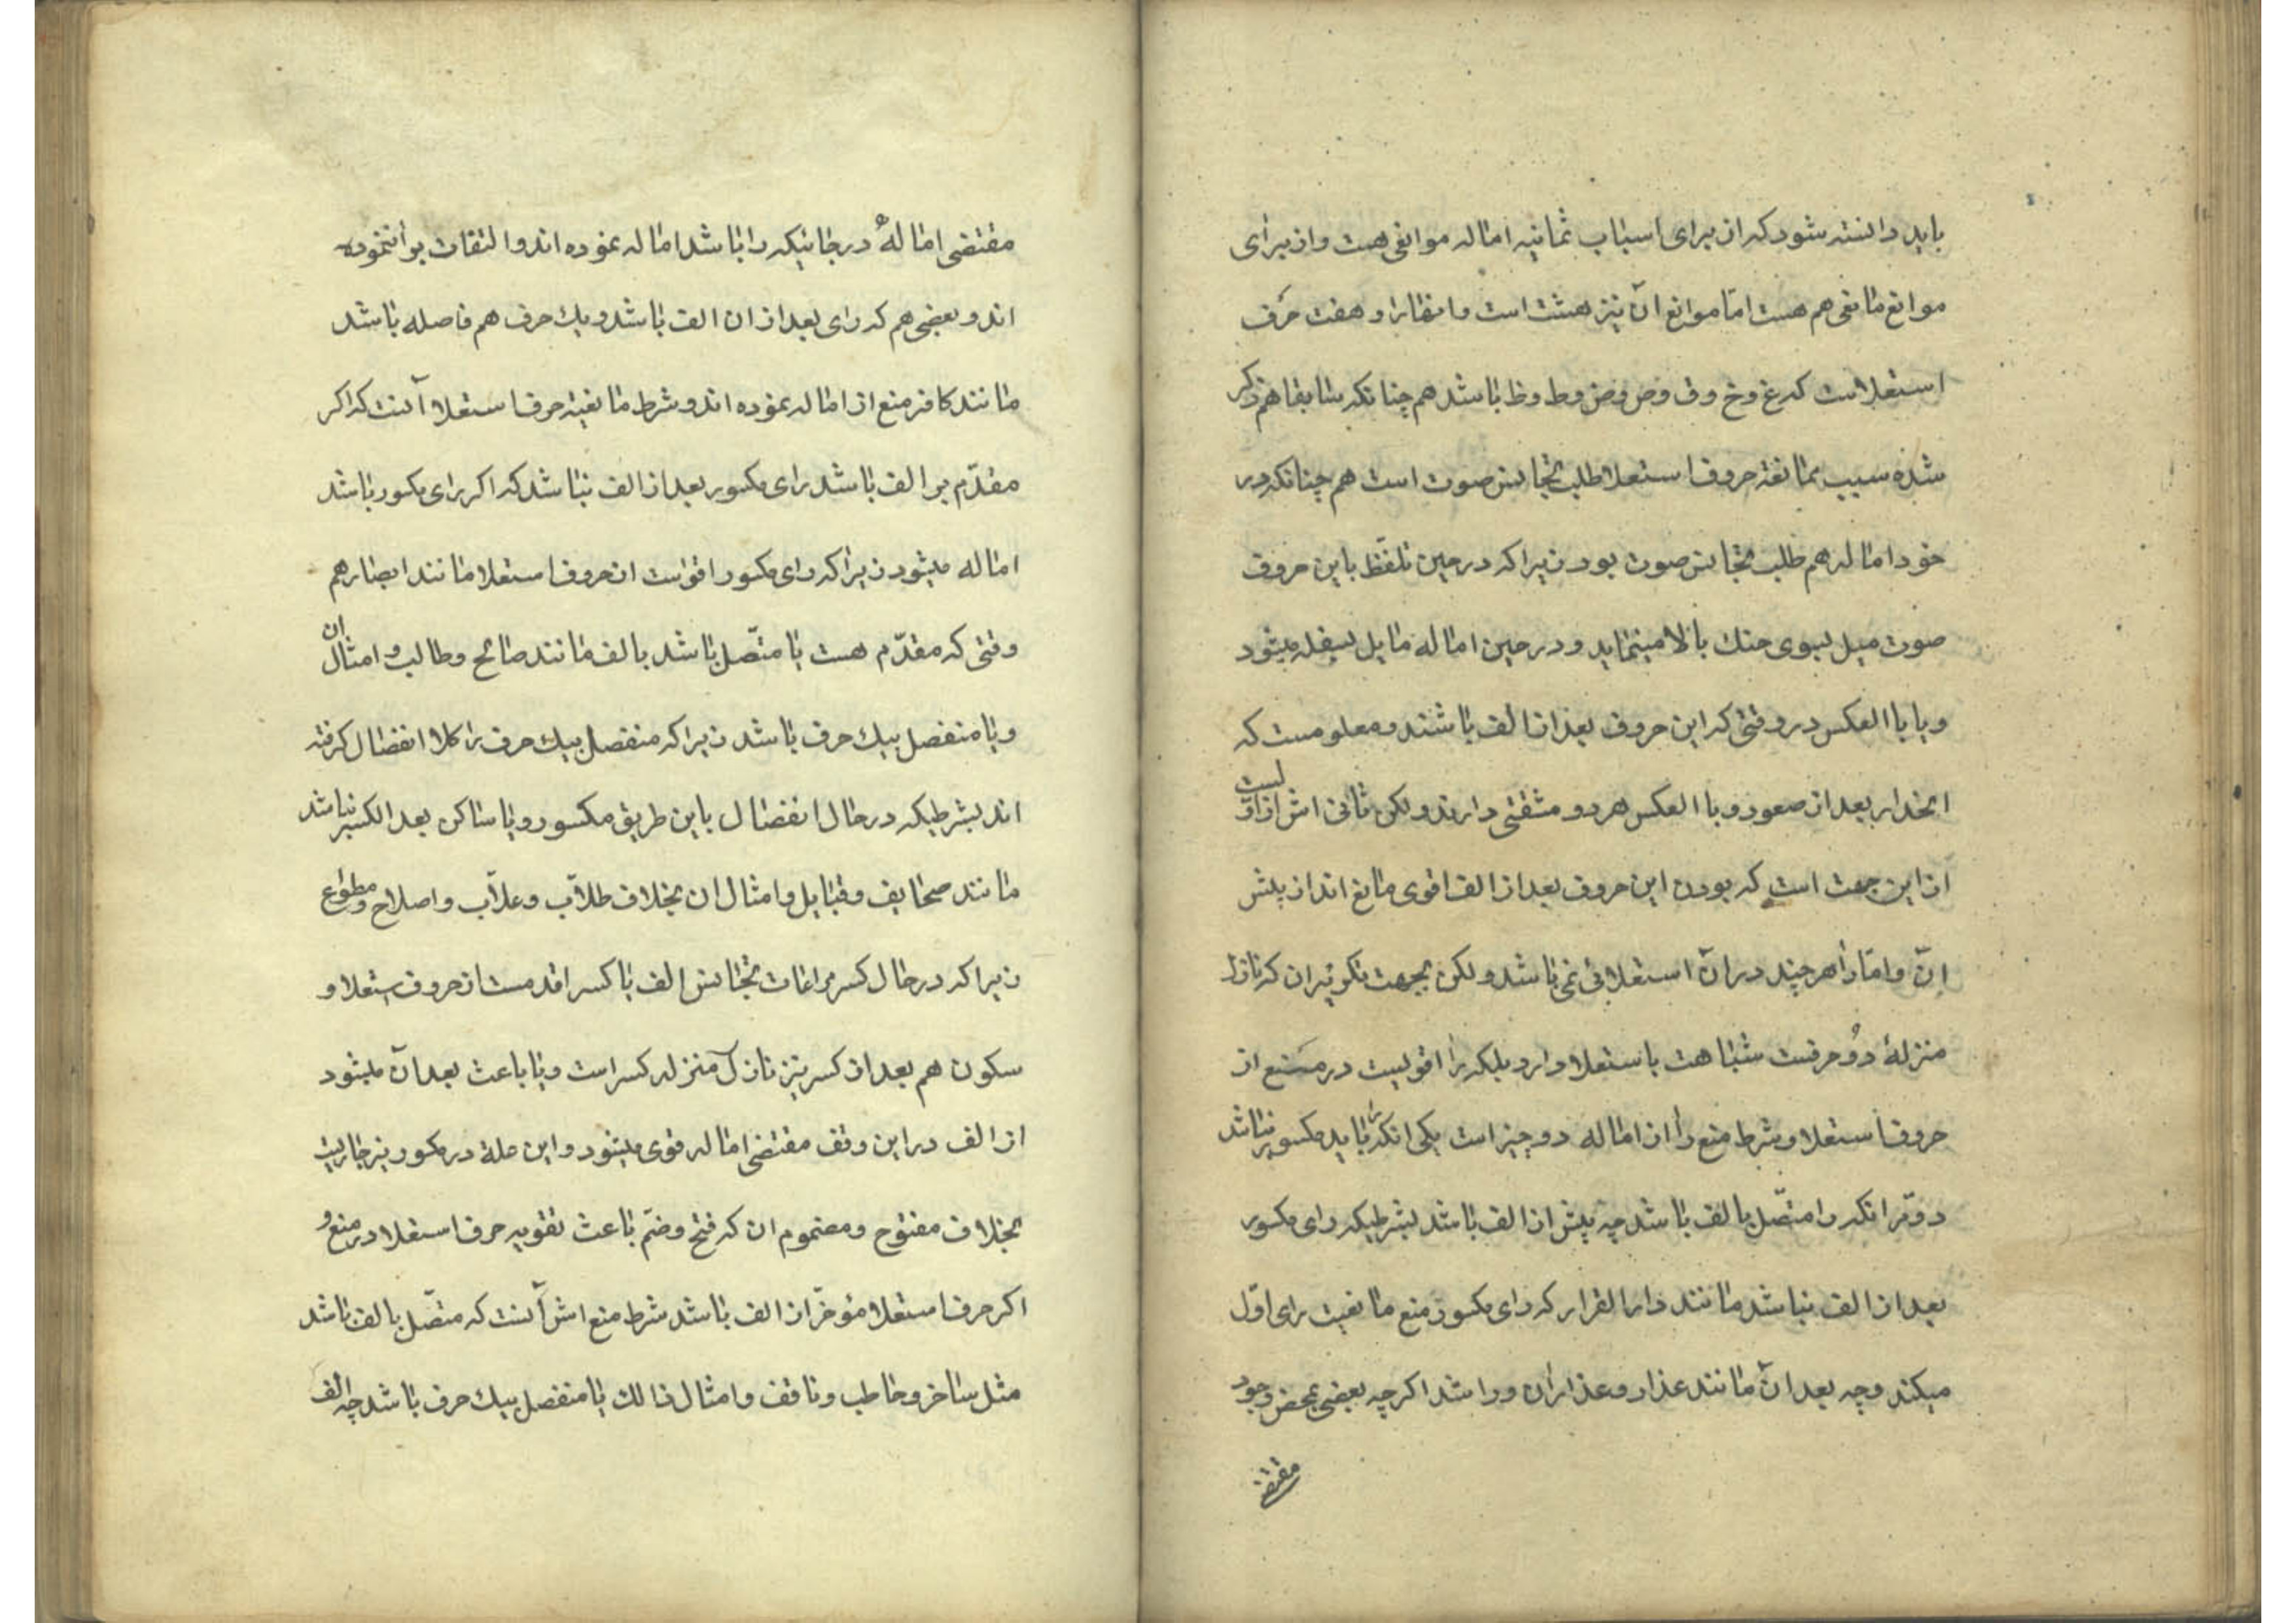 باید دانسته شود که از برای اسباب ثمانیه اماله موانعی هست و از برای
موانع مانعی هم هست امّا موانع آن نیز هشت است و را و هفت حرف
استعلاست که غ و خ و ق و ص و ض و ط و ظ باشد هم چنانکه سابقا هم ذکر
شده سبب ممانعة حروف استعلا طلب تجانس صوت است هم چنانکه در
خود اماله هم طلب تجانس صوت بود زیرا که در حین تلفّظ باین حروف
صوت میل بسوی حنك بالا مینماید و در حین اماله مایل بسفله میشود
و یا باالعکس در وقتی که این حروف بعد از الف باشند و معلومست که
انحدار بعد از صعود و باالعکس هر دو مشقتی دارند ولکن ثانی اش از اوّلیست
از این جهت است که بودن این حروف بعد از الف اقوی مانع اند از پیش
آن و امّا را هر چند در آن استعلائی نمی باشد ولکن بجهت تکویر آن که نازل
منزلهٔ دو حرفست شباهت باستعلا دارد بلکه را اقویست در منع از
حروف استعلا و شرط منع را از اماله دو چیز است یکی انکه را باید مکسور نباشد
دوّم انکه را متّصل بالف باشد چه پیش از الف باشد بشرطیکه رای مکسور
بعد از الف نباشد مانند دار القرار که رای مکسور منع مانعیت رای اوّل
میکند و چه بعد آن مانند عذار و عذاران و راشد اگر چه بعضی بمحض وجود
مقتضی
مقتضی امالهٔ در جائیکه را باشد اماله نموده اند و التفات بر را ننموده
اند و بعضی هم که رای بعد از ان الف باشد و یك حرف هم فاصله باشد
مانند کافر منع از اماله نموده اند و شرط مانعیة حرف استعلا آنست که اکر
مقدّم بر الف باشد رای مکسور بعد از الف نباشد که اکر رای مکسور باشد
اماله میشود زیرا که رای مکسور اقواست از حروف استعلا مانند ابصارهم
وقتی که مقدّم هست یا متّصل باشد بالف مانند صالح و طالب و امثال ان
و یا منفصل بیك حرف باشد زیرا که منفصل بیك حرف را کلا انفصال کرفته
اند بشرطیکه در حال انفصال باین طریق مکسور و یا ساکن بعد الکسر نباشد
مانند صحایف و قبایل و امثال ان بخلاف طلاّب و غلاّب و اصلاح و مطواع
زیرا که در حال کسر مراعات تجانس الف با کسر اقدمست از حروف استعلا و
سکون هم بعد از کسر نیز نازل منزله کسر است و یا باعث بعد آن میشود
از الف در این وقف مقتضی اماله قوی میشود و این علة در مکسور نیز جاریست
بخلاف مفتوح و مضموم ان که فتح و ضمّ باعث تقویه حرف استعلا در منع و
اکر حرف استعلا مؤخّر از الف باشد شرط منع اش آنست که متّصل بالف باشد
مثل ساخر و خاطب و ناقف و امثال ذالك یا منفصل بیك حرف باشد چه الف